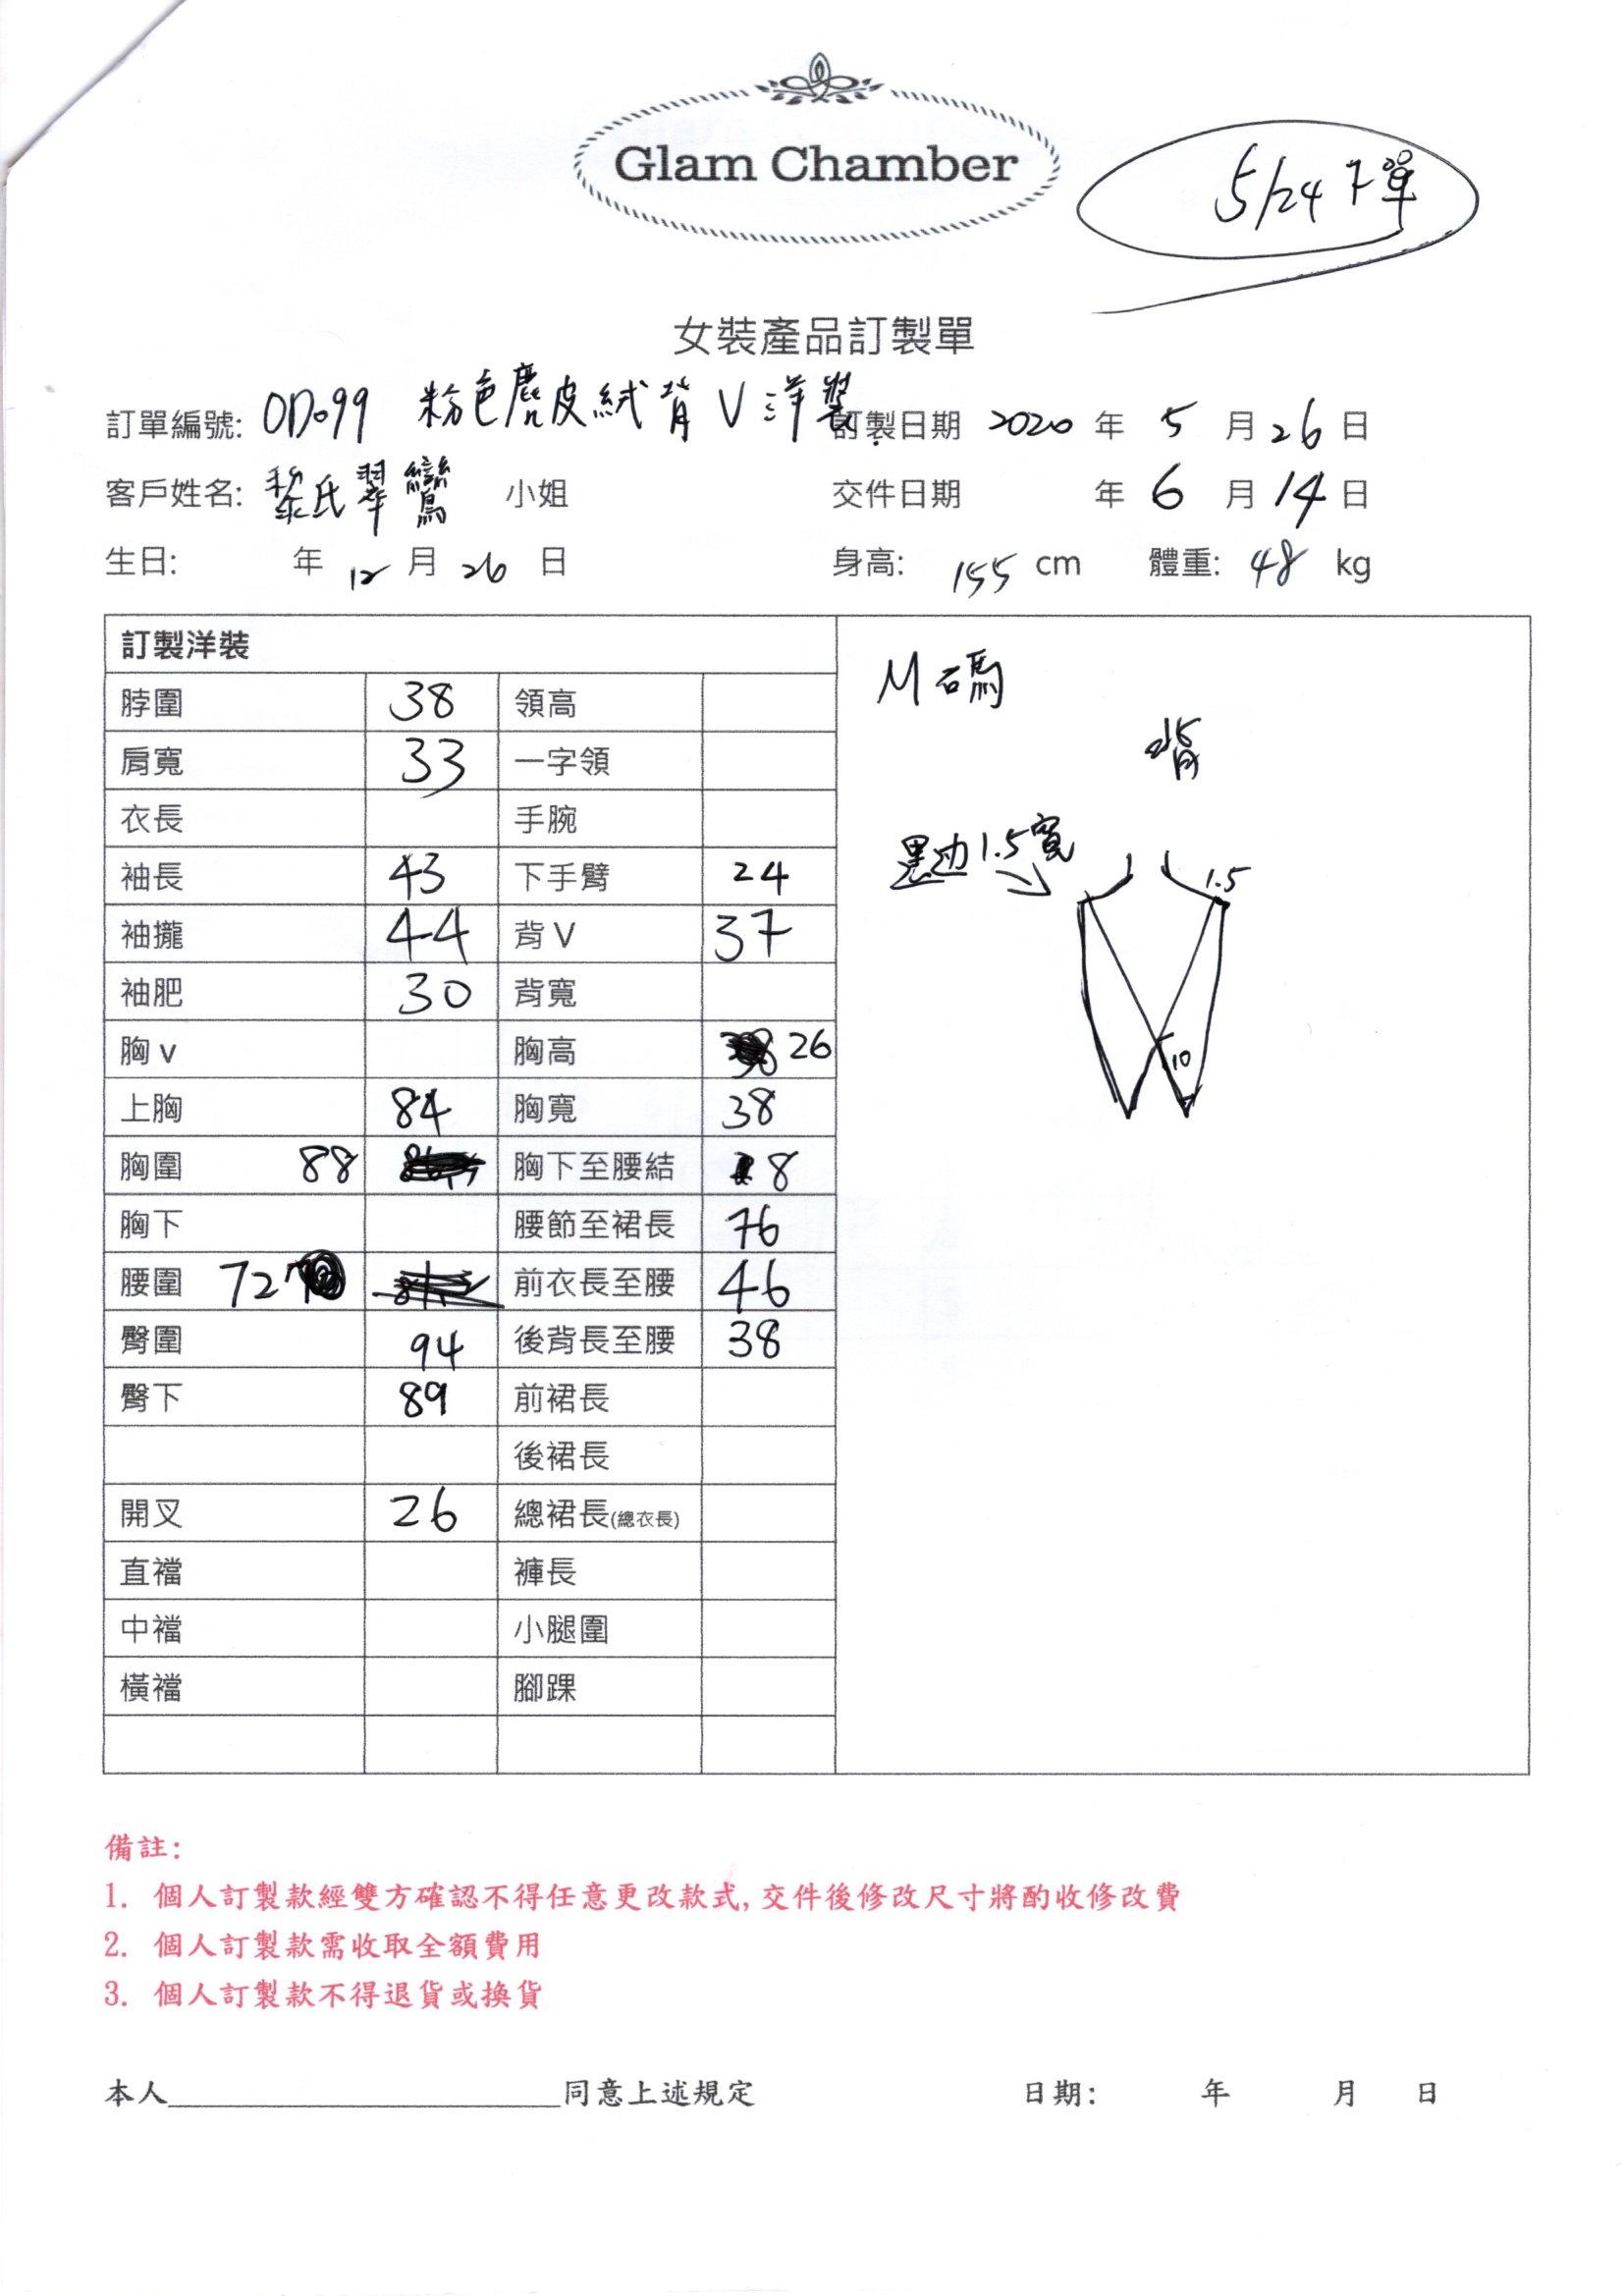 Glam Chamber
5/24 下單
女裝產品訂製單
訂單編號: OD099 粉色麂皮絨背V洋裝 訂製日期 2020 年 5 月 26 日
客戶姓名: 黎氏翠鸞 小姐 交件日期 年 6 月 14 日
生日: 年 12 月 26 日 身高: 155 cm 體重: 48 kg
訂製洋裝
脖圍 38 領高
肩寬 33 一字領
衣長 手腕
袖長 43 下手臂 24
袖攏 44 背V 37
袖肥 30 背寬
胸v 胸高 26
上胸 84 胸寬 38
胸圍 88 胸下至腰結 8
胸下 腰節至裙長 76
腰圍 72 前衣長至腰 46
臀圍 94 後背長至腰 38
臀下 89 前裙長
後裙長
開叉 26 總裙長(總衣長)
直襠 褲長
中襠 小腿圍
橫襠 腳踝
M碼
背
黑边1.5寬
1.5
10
備註:
1. 個人訂製款經雙方確認不得任意更改款式,交件後修改尺寸將酌收修改費
2. 個人訂製款需收取全額費用
3. 個人訂製款不得退貨或換貨
本人____________________同意上述規定 日期: 年 月 日